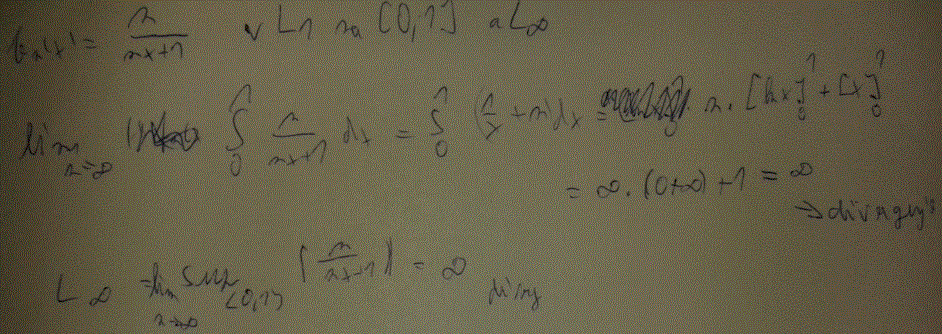 fₙ(x) = n/(nx+1) v L1 na [0,1] a L∞
lim n→∞ ∫₀¹ n/(nx+1) dx = ∫₀¹ (1/x + n) dx = n · [ln x]₀¹ + [x]₀¹
= ∞ · (0+∞) + 1 = ∞
→ diverguje
L∞ = lim n→∞ sup <0,1> | n/(nx+1) | = ∞